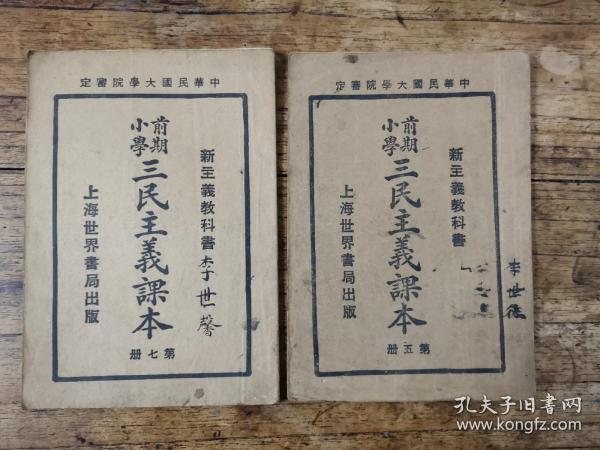 中華民國大學院審定
新主義教科書
李世馨
前期
小學
三民主義課本
上海世界書局出版
第七册
中華民國大學院審定
新主義教科書
李世
前期
小學
三民主義課本
上海世界書局出版
第五册
孔夫子旧书网
www.kongfz.com